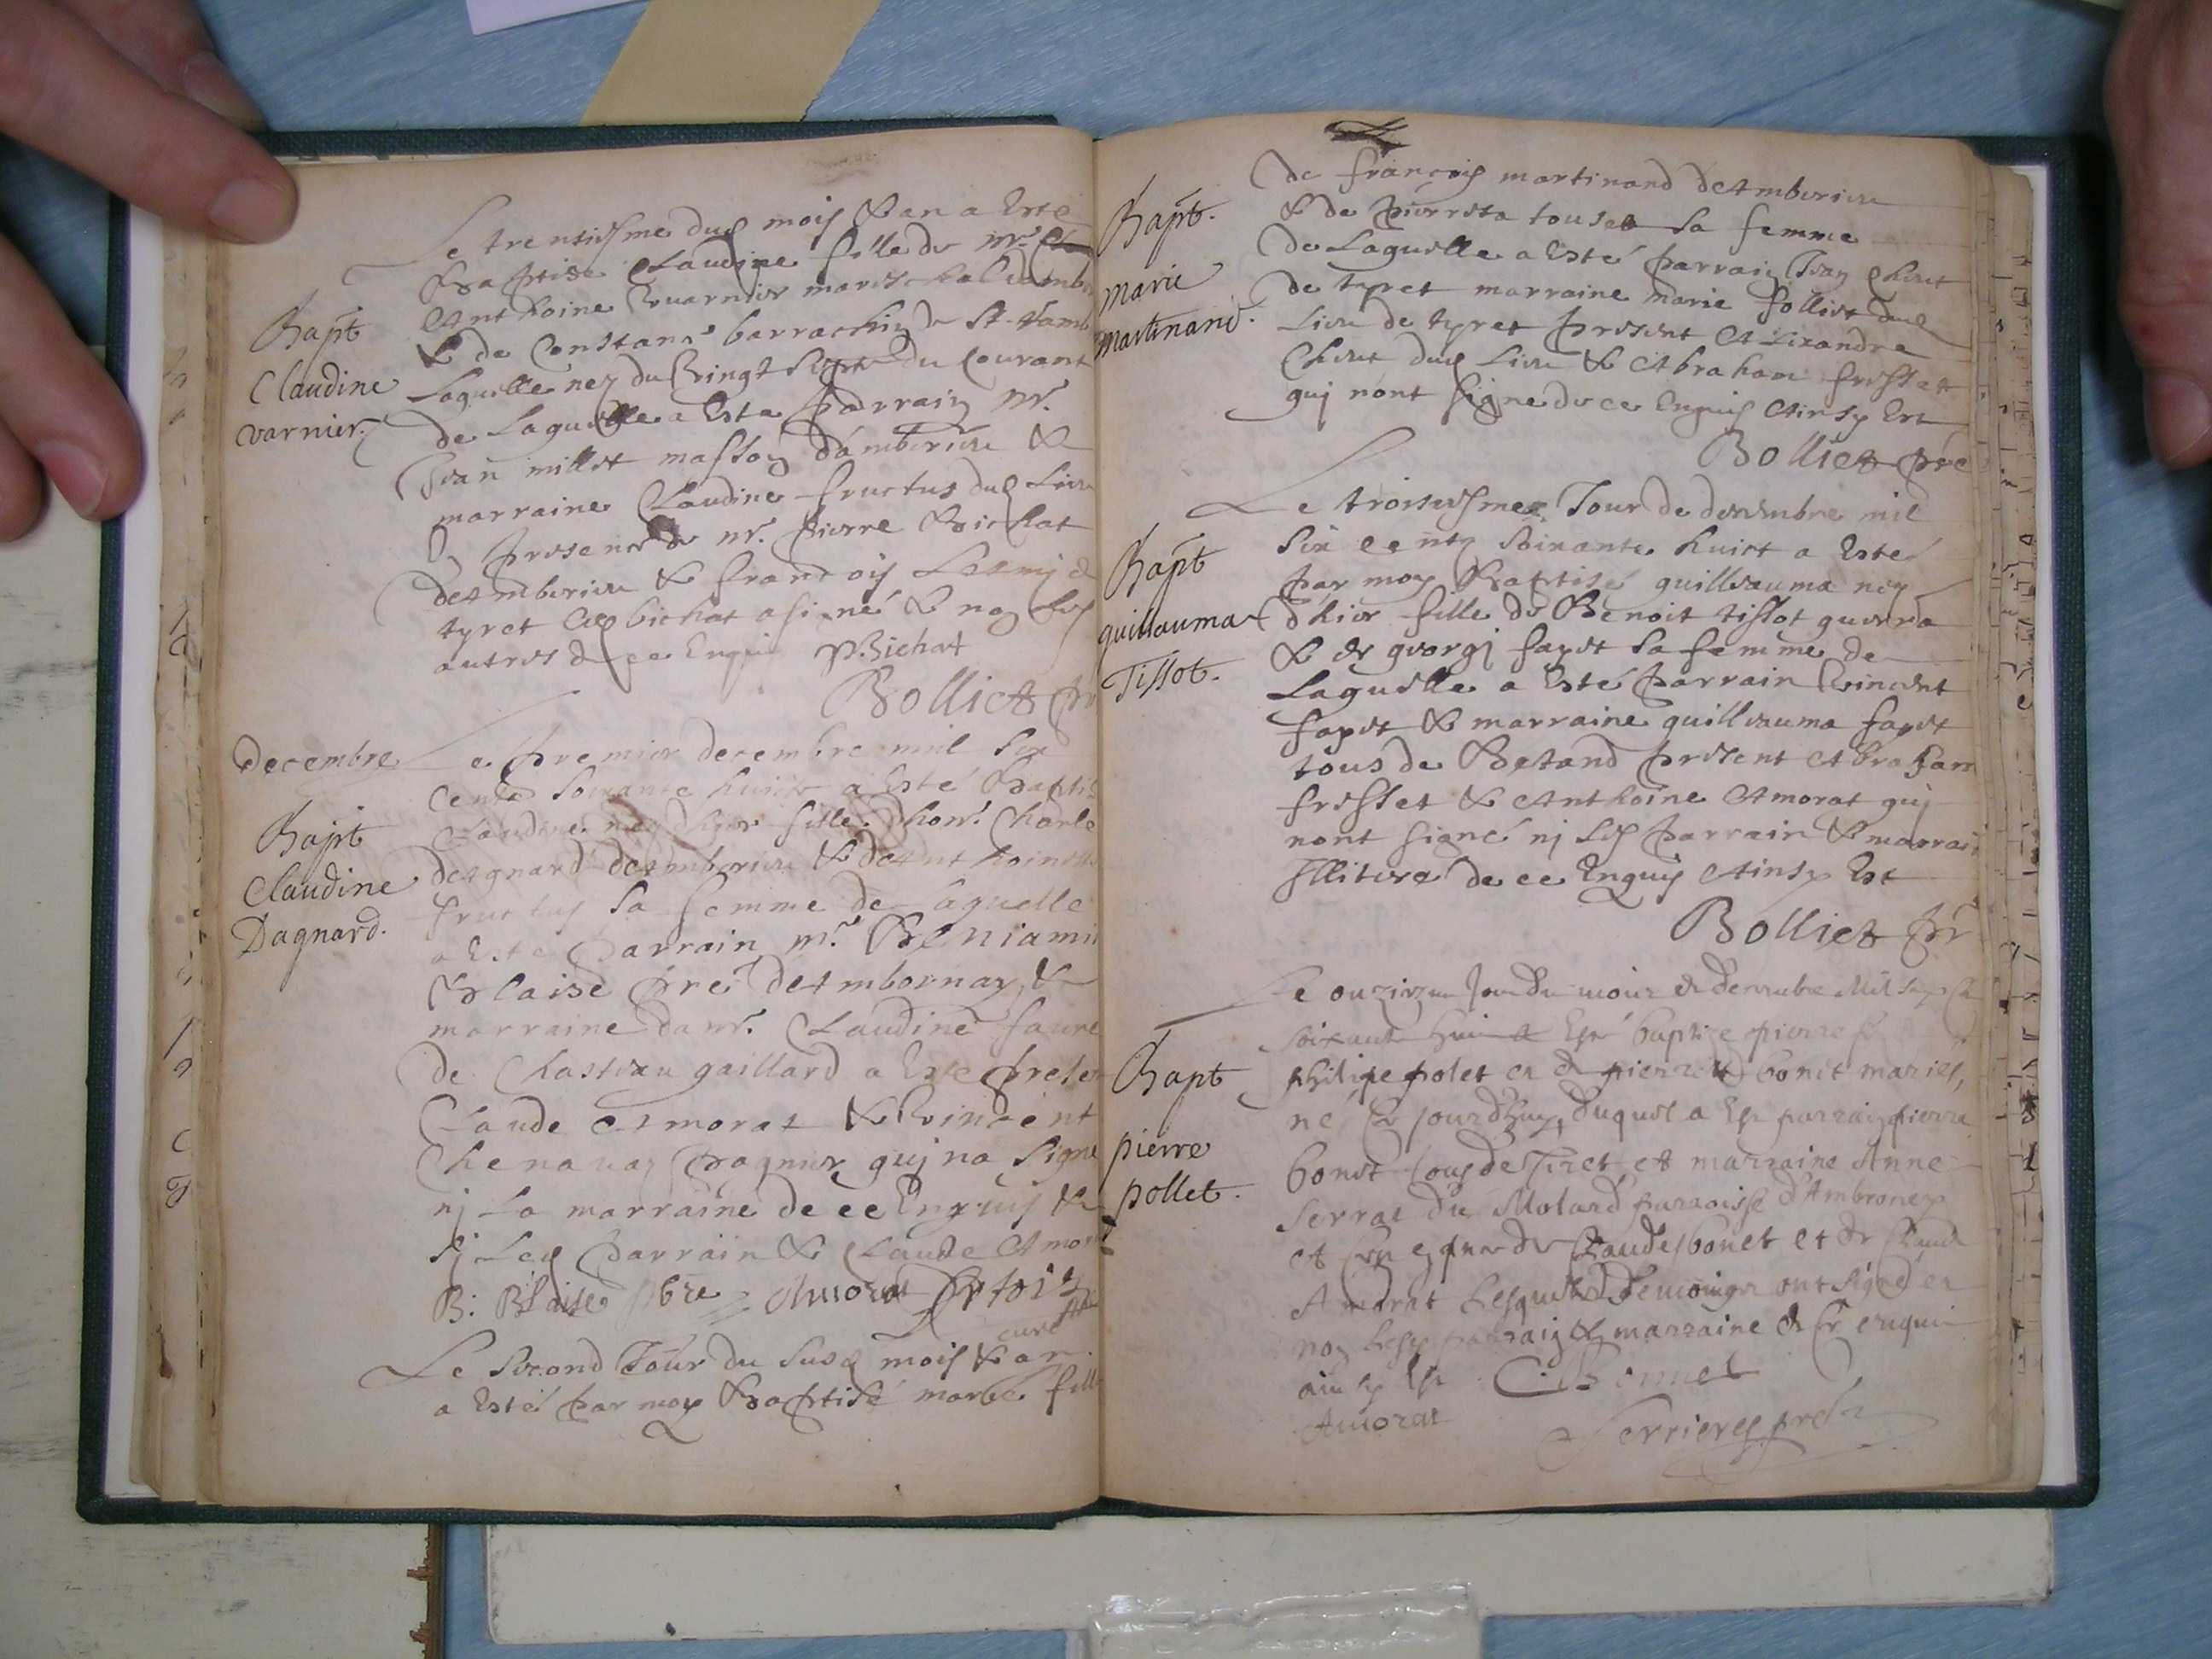 Le trentiesme dud mois & an a Este
Baptisé Claudine fille de mr.
Anthoine Vuarnier mareschal
& de Constans barrachin de St.
Laquelle ney du Vingt Sept du Courant
de Laquelle a Esta parrain mr.
Jean millet masson damberieu &
marraine Claudine fructus dud Lieu
En presence de mr. pierre Bichat
deAmberieu & francois
tyret led bichat a signé & non les
autres de ce Enquis P. Bichat
Bolliet
Bapt
Claudine
varnier
Decembre
Le premier decembre mil Six
Cents Soixante huict a Esté Baptis
Claudine ney hier fille dhon. Charle
dagnard deamberieu & deAnthoinette
fructus Sa femme de Laquelle
a Esté parrain mr. Beniamin
Blaise pre. deAmbornay &
marraine damr. Claudine faure
de Chasteau gaillard a Este presen
Claude Amorat & Vincent
Chenavaz qui na Signe
nj La marraine de ce Enquis &
Si Led parrain & Claude Amorat
B: Blaise pbre Amorat
curé
Bapt
Claudine
Dagnard.
Le Second Jour du Susd mois & an
a Esté par moy Baptisé marie fille
de françois martinand deAmberieu
& de pierreta touset Sa femme
de Laquelle a Esté parrain Jean Chevet
de tyret marraine marie polliet dud
Lieu de tyret present Alixandre
Chevet dud Lieu & Abraham fresset
quj nont signe de ce Enquis Ainsy Est
Bolliet pre
Bapt.
marie
martinand.
Le troisiesme Jour de decembre mil
Six cents Soixante huict a Esté
par moy Baptisé guilleauma ney
dhier fille de Benoit tissot guerra
& de georgi fayet Sa femme de
Laquelle a Esté parrain Vincent
fayet & marraine guilleauma fayet
tous de Betand present Abraham
fresset & Anthoine Amorat quj
nont signé nj Les parrain & marrain
Illitere de ce Enquis Ainsy Est
Bolliet pr
Bapt
guillauma
Tissot.
Le onziesme Jour du mois de decembre Mil
soixante huict a Esté baptize pierre
philipe polet et de pierrette bonet mariés,
né ce jourdhuy, duquel a Esté parrain pierre
bonet tous de Tiret et marraine Anne
Serrat du Molard parroisse d'Ambroney
et en presence de Claude bonet et de Claude
Amorat Lesquels temoings ont signé et
non lesd parrain & marraine de ce enquis
ainsy Est C. Bonnet
Amorat
Ferrieres
Bapt
pierre
pollet.